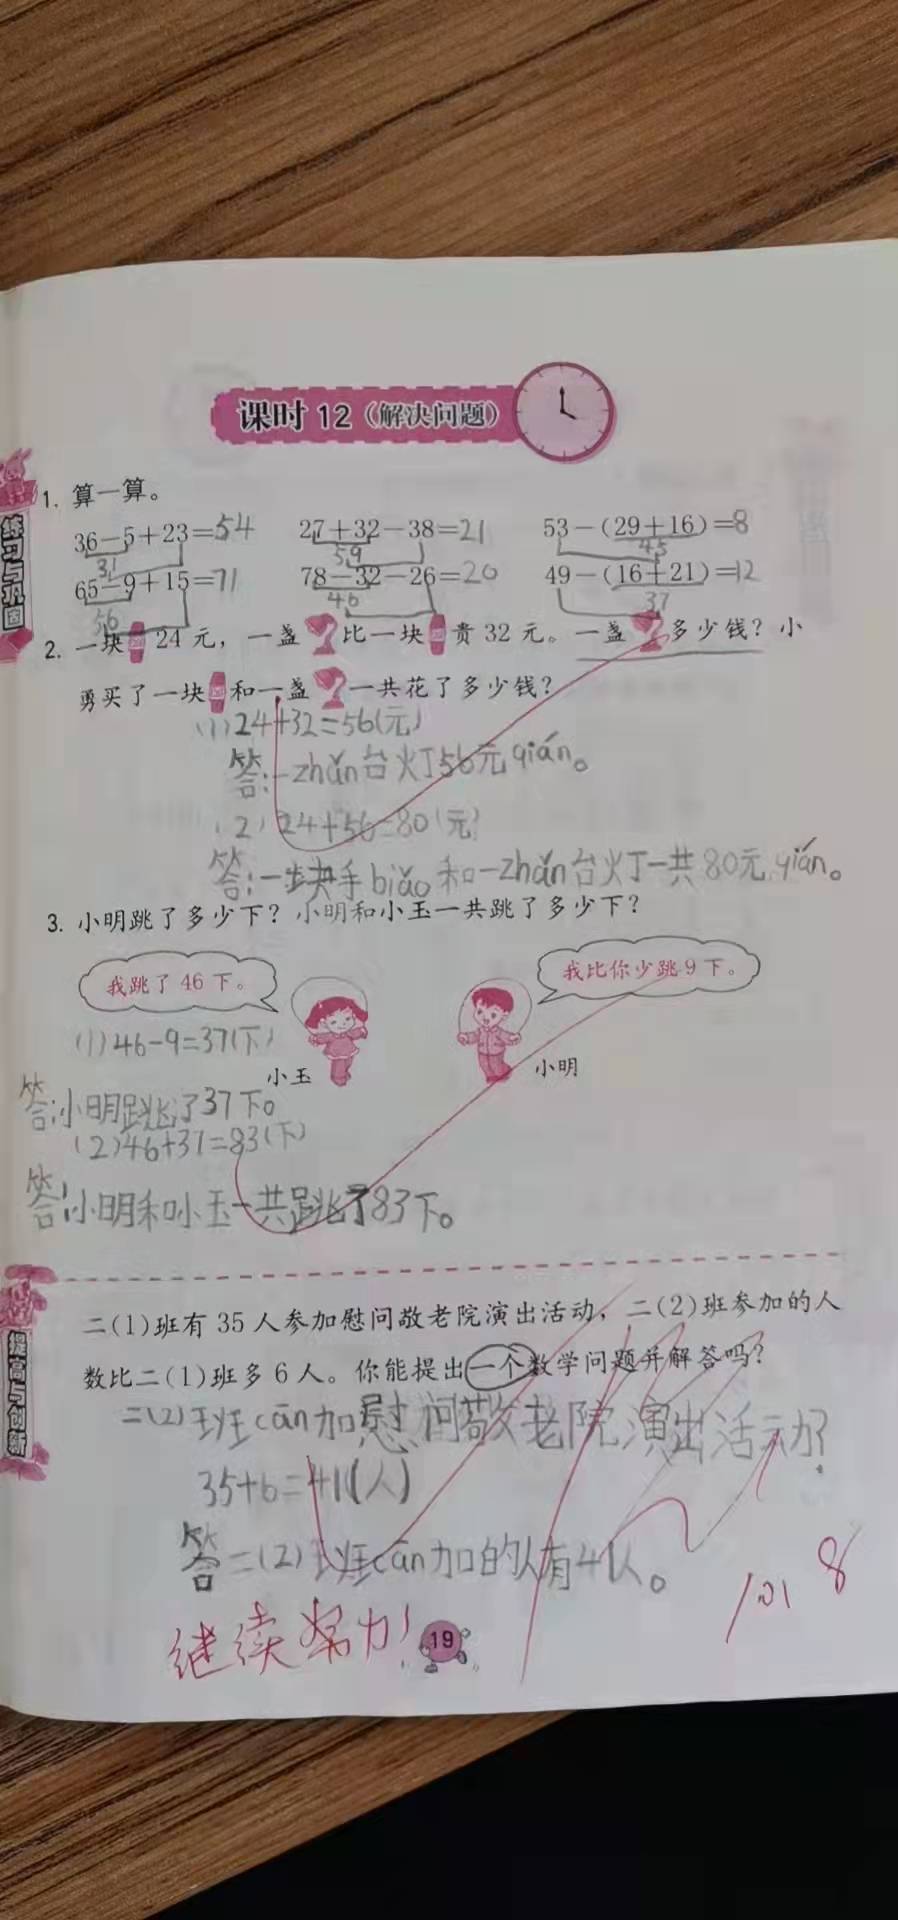 课时 12（解决问题）
练习与巩固
1. 算一算。
36－5＋23＝54 27＋32－38＝21 53－(29＋16)＝8
31 59 45
65－9＋15＝71 78－32－26＝20 49－(16＋21)＝12
56 46 37
2. 一块 24 元，一盏 比一块 贵 32 元。一盏 多少钱？小
勇买了一块 和一盏 一共花了多少钱？
(1)24+32=56(元)
答:一zhǎn台火丁56元qián。
(2)24+56=80(元)
答:一块手biǎo和一zhǎn台火丁一共80元qián。
3. 小明跳了多少下？小明和小玉一共跳了多少下？
我跳了 46 下。 我比你少跳 9 下。
(1)46-9=37(下)
小玉 小明
答:小明跳了37下。
(2)46+37=83(下)
答:小明和小玉一共跳了83下。
提高与创新
二(1)班有 35 人参加慰问敬老院演出活动，二(2)班参加的人
数比二(1)班多 6 人。你能提出一个数学问题并解答吗？
二(2)班cān加慰问敬老院演出活动?
35+6=41(人)
答二(2)班cān加的人有41人。
继续努力!
19